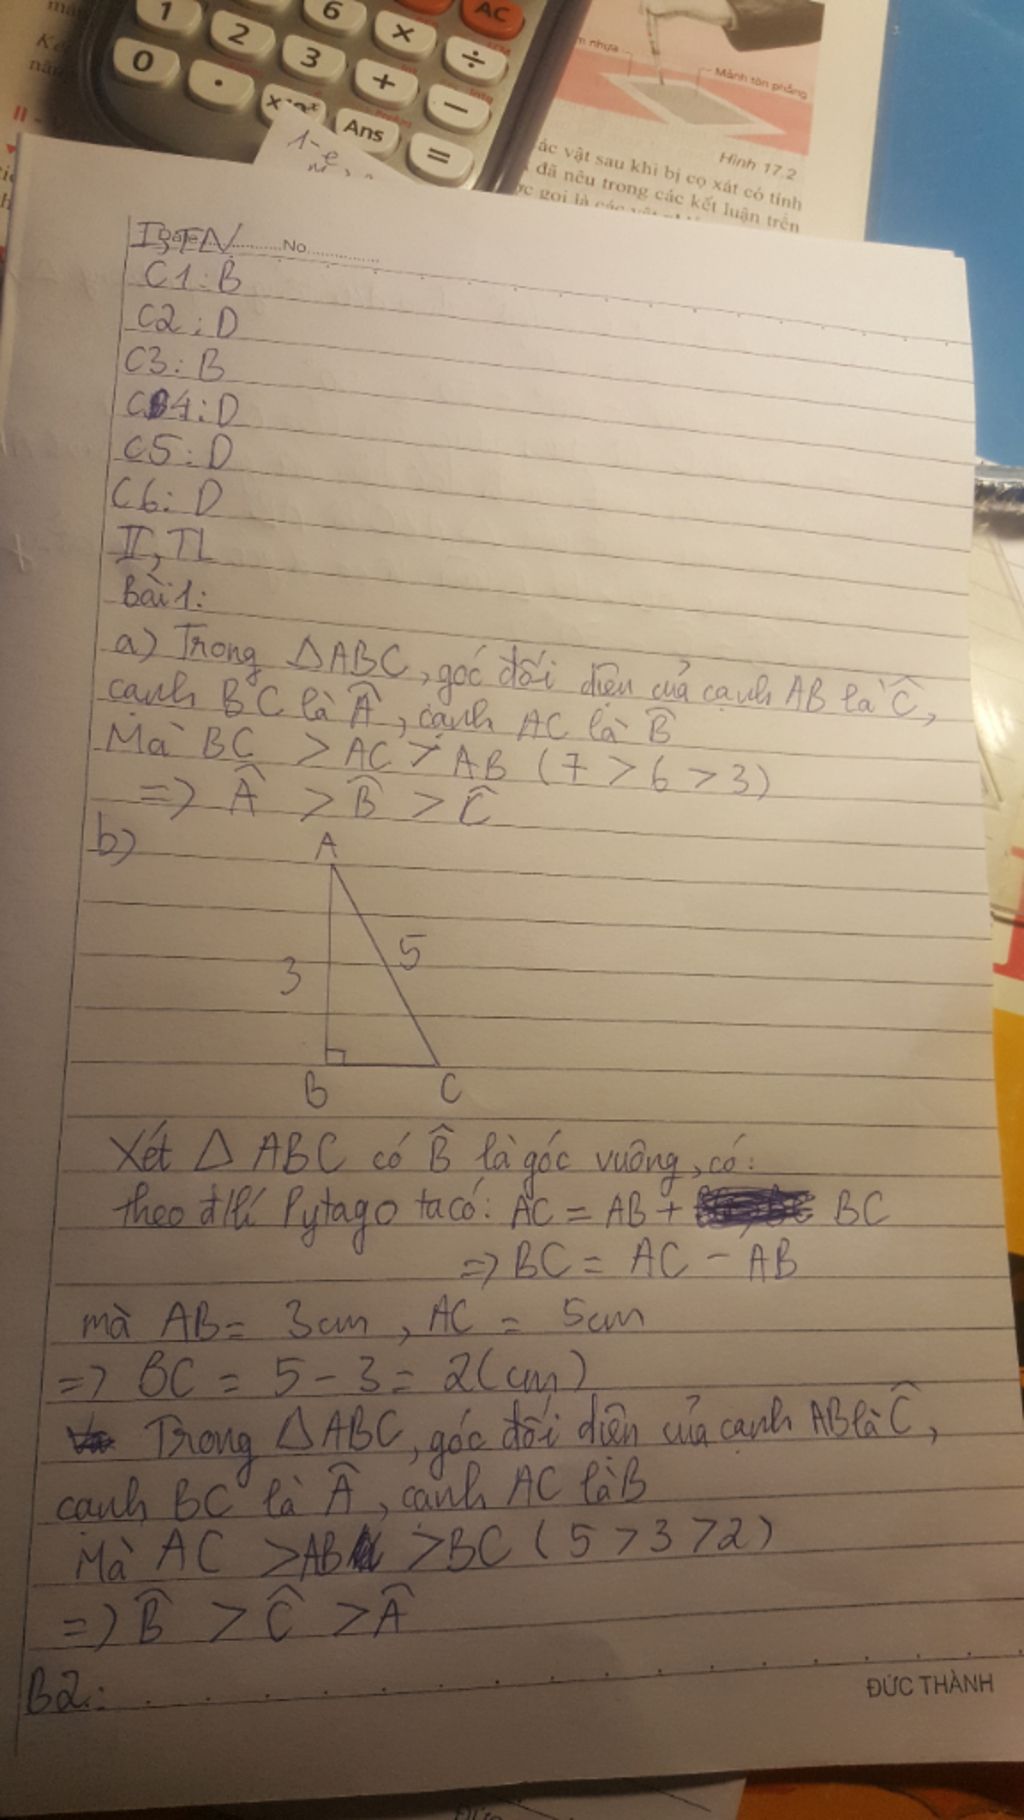 1
2
3
6
×
AC
÷
0
.
+
−
Ans
=
Mảnh tôn phẳng
Hình 17.2
ác vật sau khi bị cọ xát có tính
đã nêu trong các kết luận trên
I, TN
No
C1: B
C2: D
C3: B
C4: D
C5: D
C6: D
II, TL
Bài 1:
a) Trong ΔABC, góc đối diện của cạnh AB là Ĉ,
cạnh BC là Â, cạnh AC là B̂
Mà BC > AC > AB (7 > 6 > 3)
=> Â > B̂ > Ĉ
b)
A
3
5
B
C
Xét Δ ABC có B̂ là góc vuông, có:
theo đ/lí Pytago ta có: AC = AB + BC
=> BC = AC − AB
mà AB = 3cm, AC = 5cm
=> BC = 5 − 3 = 2 (cm)
Trong ΔABC, góc đối diện của cạnh AB là Ĉ,
cạnh BC là Â, cạnh AC là B
Mà AC > AB > BC (5 > 3 > 2)
=> B̂ > Ĉ > Â
B2:
ĐỨC THÀNH